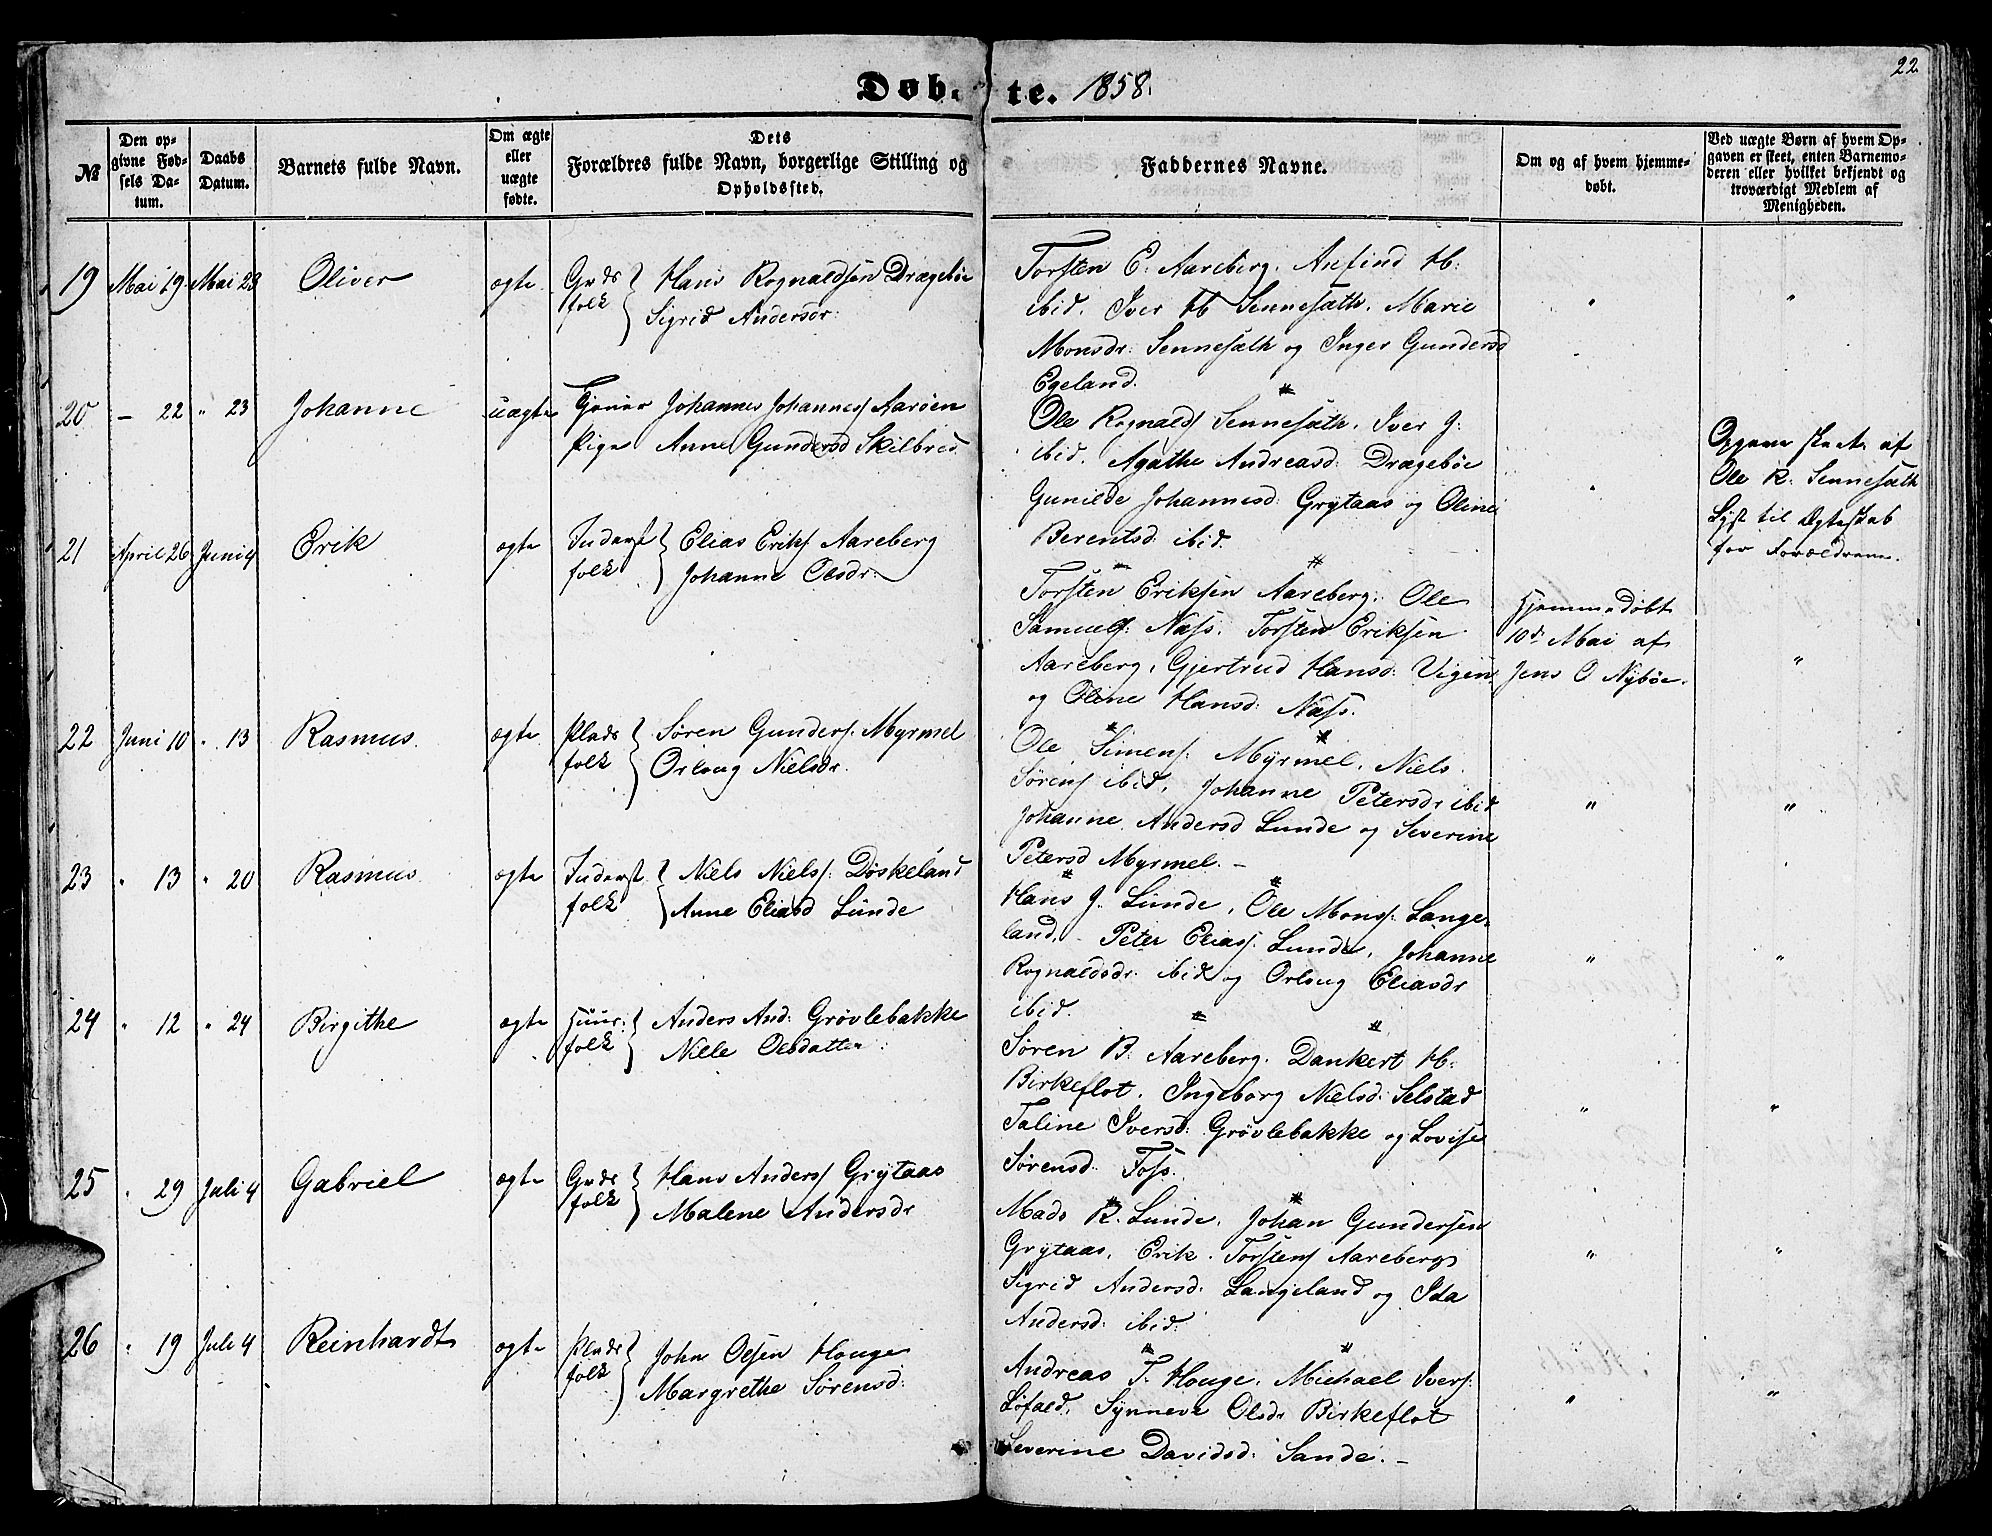 22
Døb- te. 1858.
№
Den opgivne Fødsels Datum.
Daabs Datum.
Barnets fulde Navn.
Om ægte eller uægte fødte.
Dets Forældres fulde Navn, borgerlige Stilling og Opholdssted.
Faddernes Navne.
Om og af hvem hjemmedøbt.
Ved uægte Børn af hvem Opgaven er skeet, enten Barnemoderen eller hvilket bekjendt og troværdigt Medlem af Menigheden.
19 Mai 19 Mai 23 Oliver ægte Grds folk Hans Rognaldsen Drægebøe
Sigrid Andersdr:
Torsten E. Aareberg. Anfind H:
ibid. Iver H Sennesæth. Marie
Monsdr: Sennesæth og Inger Gundersd
Egeland.
" "
20 — 22 " 23 Johanne uægte Tjener Johannes Johannes Aarøen
Pige Anne Gundersd Skilbred
Ole Rognalds Sennesæth. Iver J:
ibid. Agathe Andreasd: Drægebøe
Gunilde Johannesd: Grytaas og Oline
Berentsd. ibid.
"
Opgave skeet af
Ole R: Sennesæth
Lyst til Ægteskab
for Forældrene.
21 April 26 Juni 4 Erik ægte Inderst folk Elias Eriks Aareberg
Johanne Olsdr:
Torsten Eriksen Aareberg. Ole
Samuels: Næss. Torsten Eriksen
Aareberg, Gjertrud Hansd: Vigen
og Oline Hansd: Næss.
Hjemmedøbt
10d Mai af
Jens O Nybøe.
"
22 Juni 10 " 13 Rasmus. ægte Plads folk Søren Gunders. Myrmel
Orloug Nielsdr.
Ole Simens: Myrmel. Niels
Sørens ibid. Johanne Petersdr ibid
Johanne Andersd Lunde og Severine
Petersd Myrmel. —
" "
23 " 13 " 20 Rasmus ægte Inderst folk Niels Niels: Døskeland
Anne Eliasd Lunde
Hans J. Lunde, Ole Mons: Langeland.
Peter Elias: Lunde, Johanne
Rognaldsdr. ibid og Orloug Eliasdr
ibid.
" "
24 " 12 " 24 Birgithe ægte Huus: folk Anders And: Grøvlebakke
Niele Olsdatter
Søren B: Aareberg. Dankert H:
Birkeflot. Ingeborg Nielsd: Selstad
Taline Iversd: Grøvlebakke og Lovise
Sørensd: Foss.
" "
25 " 29 Juli 4 Gabriel ægte Grds folk Hans Anders Grytaas
Malene Andersdr
Mads R. Lunde, Johan Gundersen
Grytaas, Erik Torstens Aareberg
Sigrid Andersd: Langeland og Ida
Andersd: ibid.
" "
26 " 19 Juli 4 Reinhardt ægte Plads folk John Olsen Houge
Margrethe Sørensd:
Andreas T. Houge. Michael Ivers:
Løfald. Synneve Olsdr Birkeflot
Severine Davidsd: Sande. —
" "